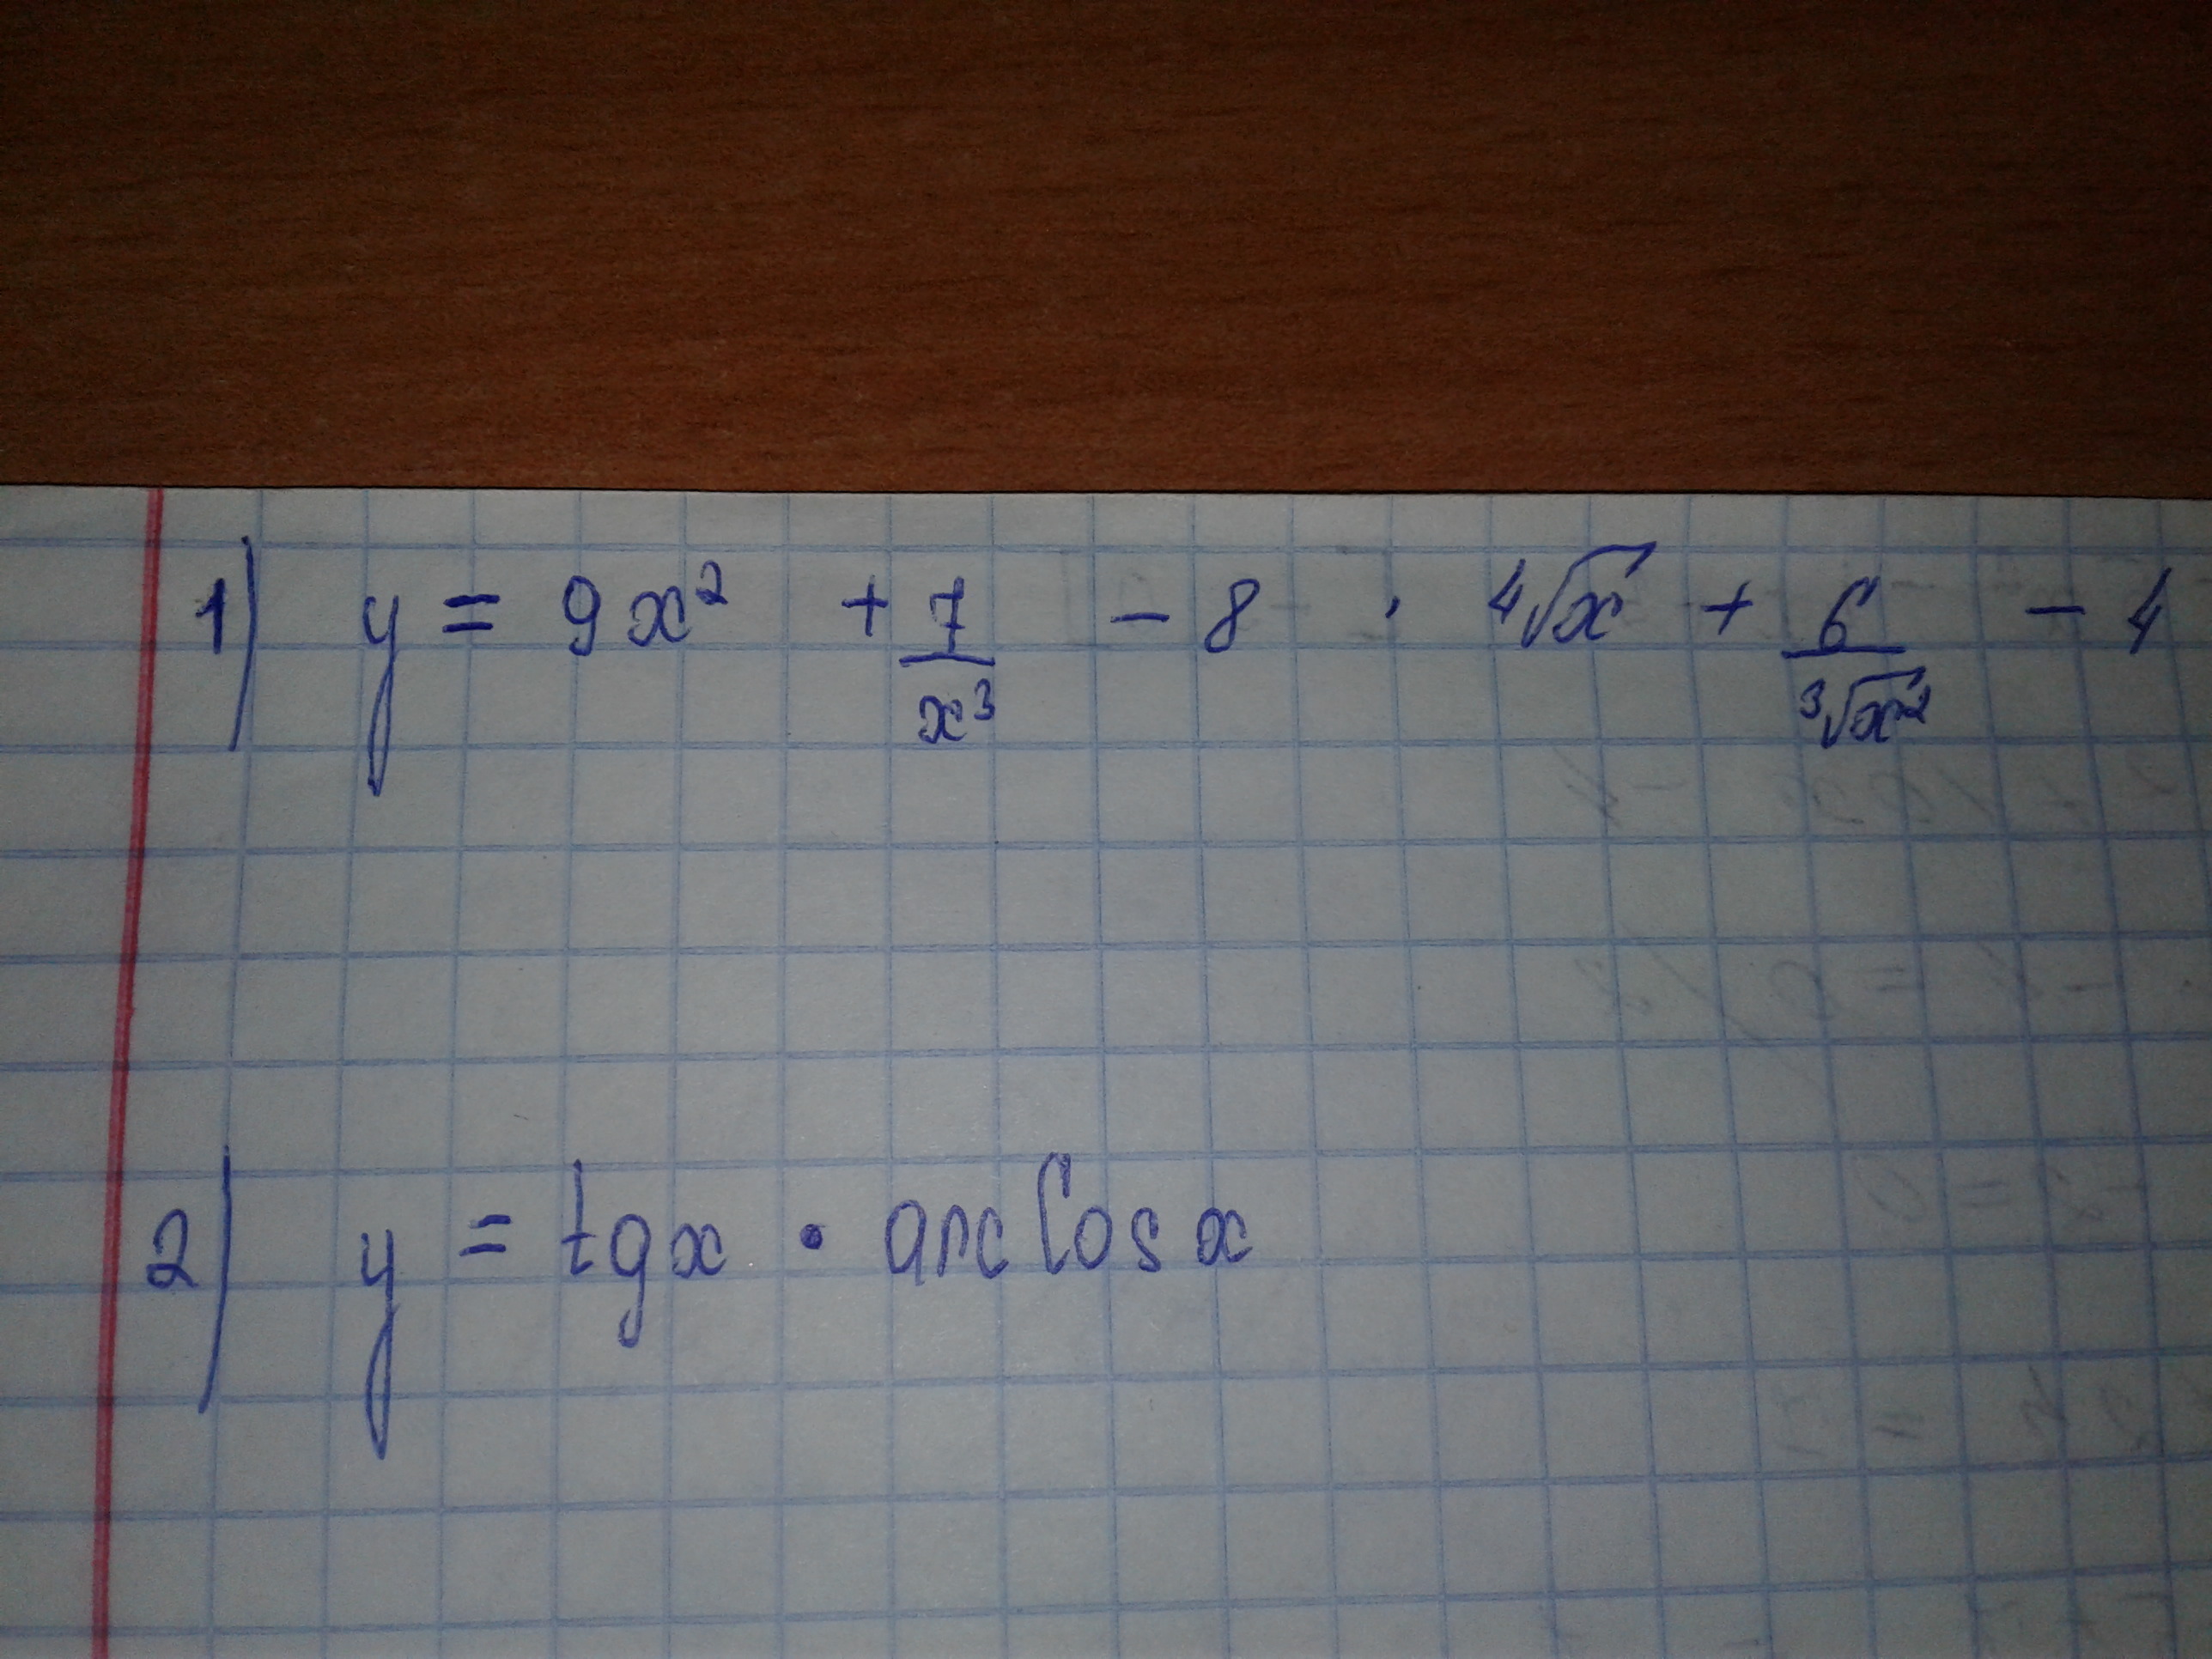 1) y = 9x² + 7/x³ - 8 · ⁴√x + 6/³√x² - 4
2) y = tgx · arccosx